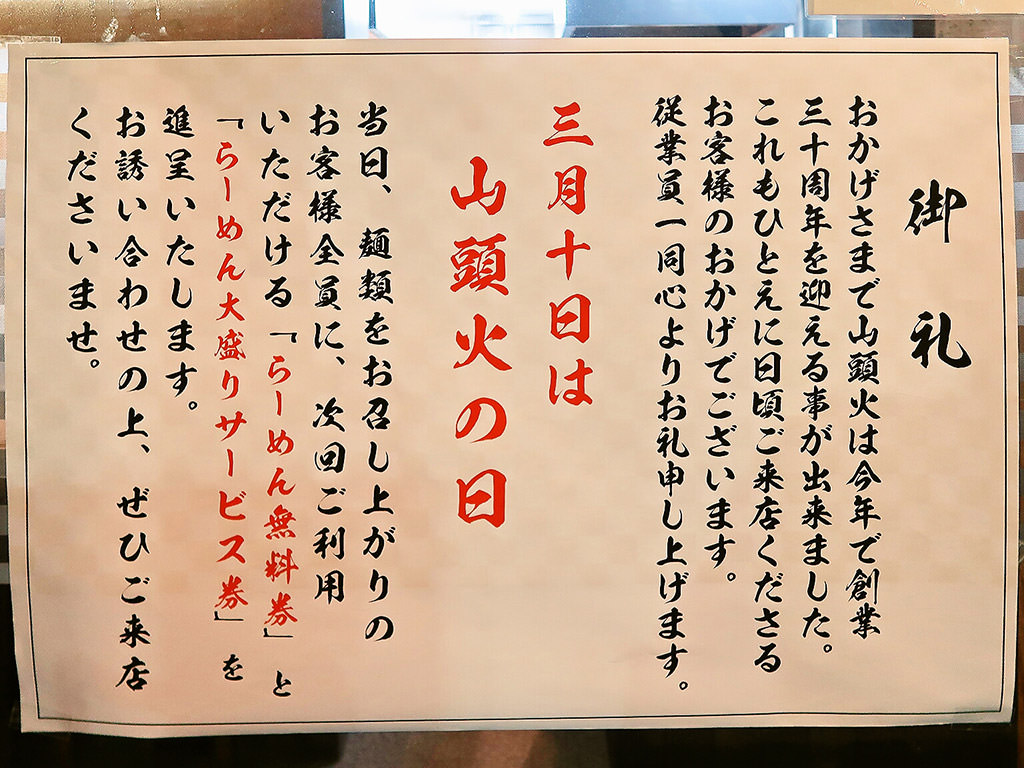 御礼
おかげさまで山頭火は今年で創業
三十周年を迎える事が出来ました。
これもひとえに日頃ご来店くださる
お客様のおかげでございます。
従業員一同心よりお礼申し上げます。
三月十日は
山頭火の日
当日、麺類をお召し上がりの
お客様全員に、次回ご利用
いただける「らーめん無料券」と
「らーめん大盛りサービス券」を
進呈いたします。
お誘い合わせの上、ぜひご来店
くださいませ。